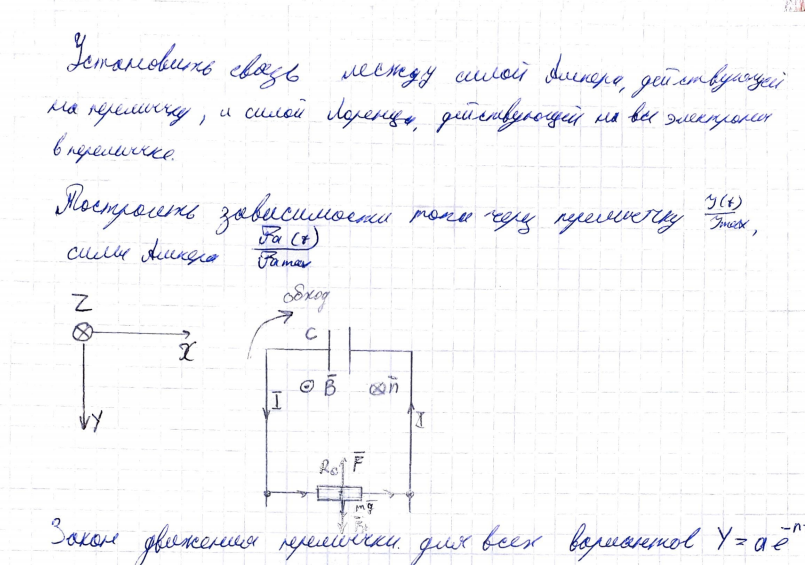 Установить связь между силой Ампера, действующей
на перемычку, и силой Лоренца, действующей на все электроны
в перемычке.
Построить зависимости тока через перемычку J(t)/Jmax,
силы Ампера Fa(t)/Fa max
обход
Z
X
Y
C
B
n
I
I
R₀
F
mg
Закон движения перемычки для всех вариантов Y = a e^-n